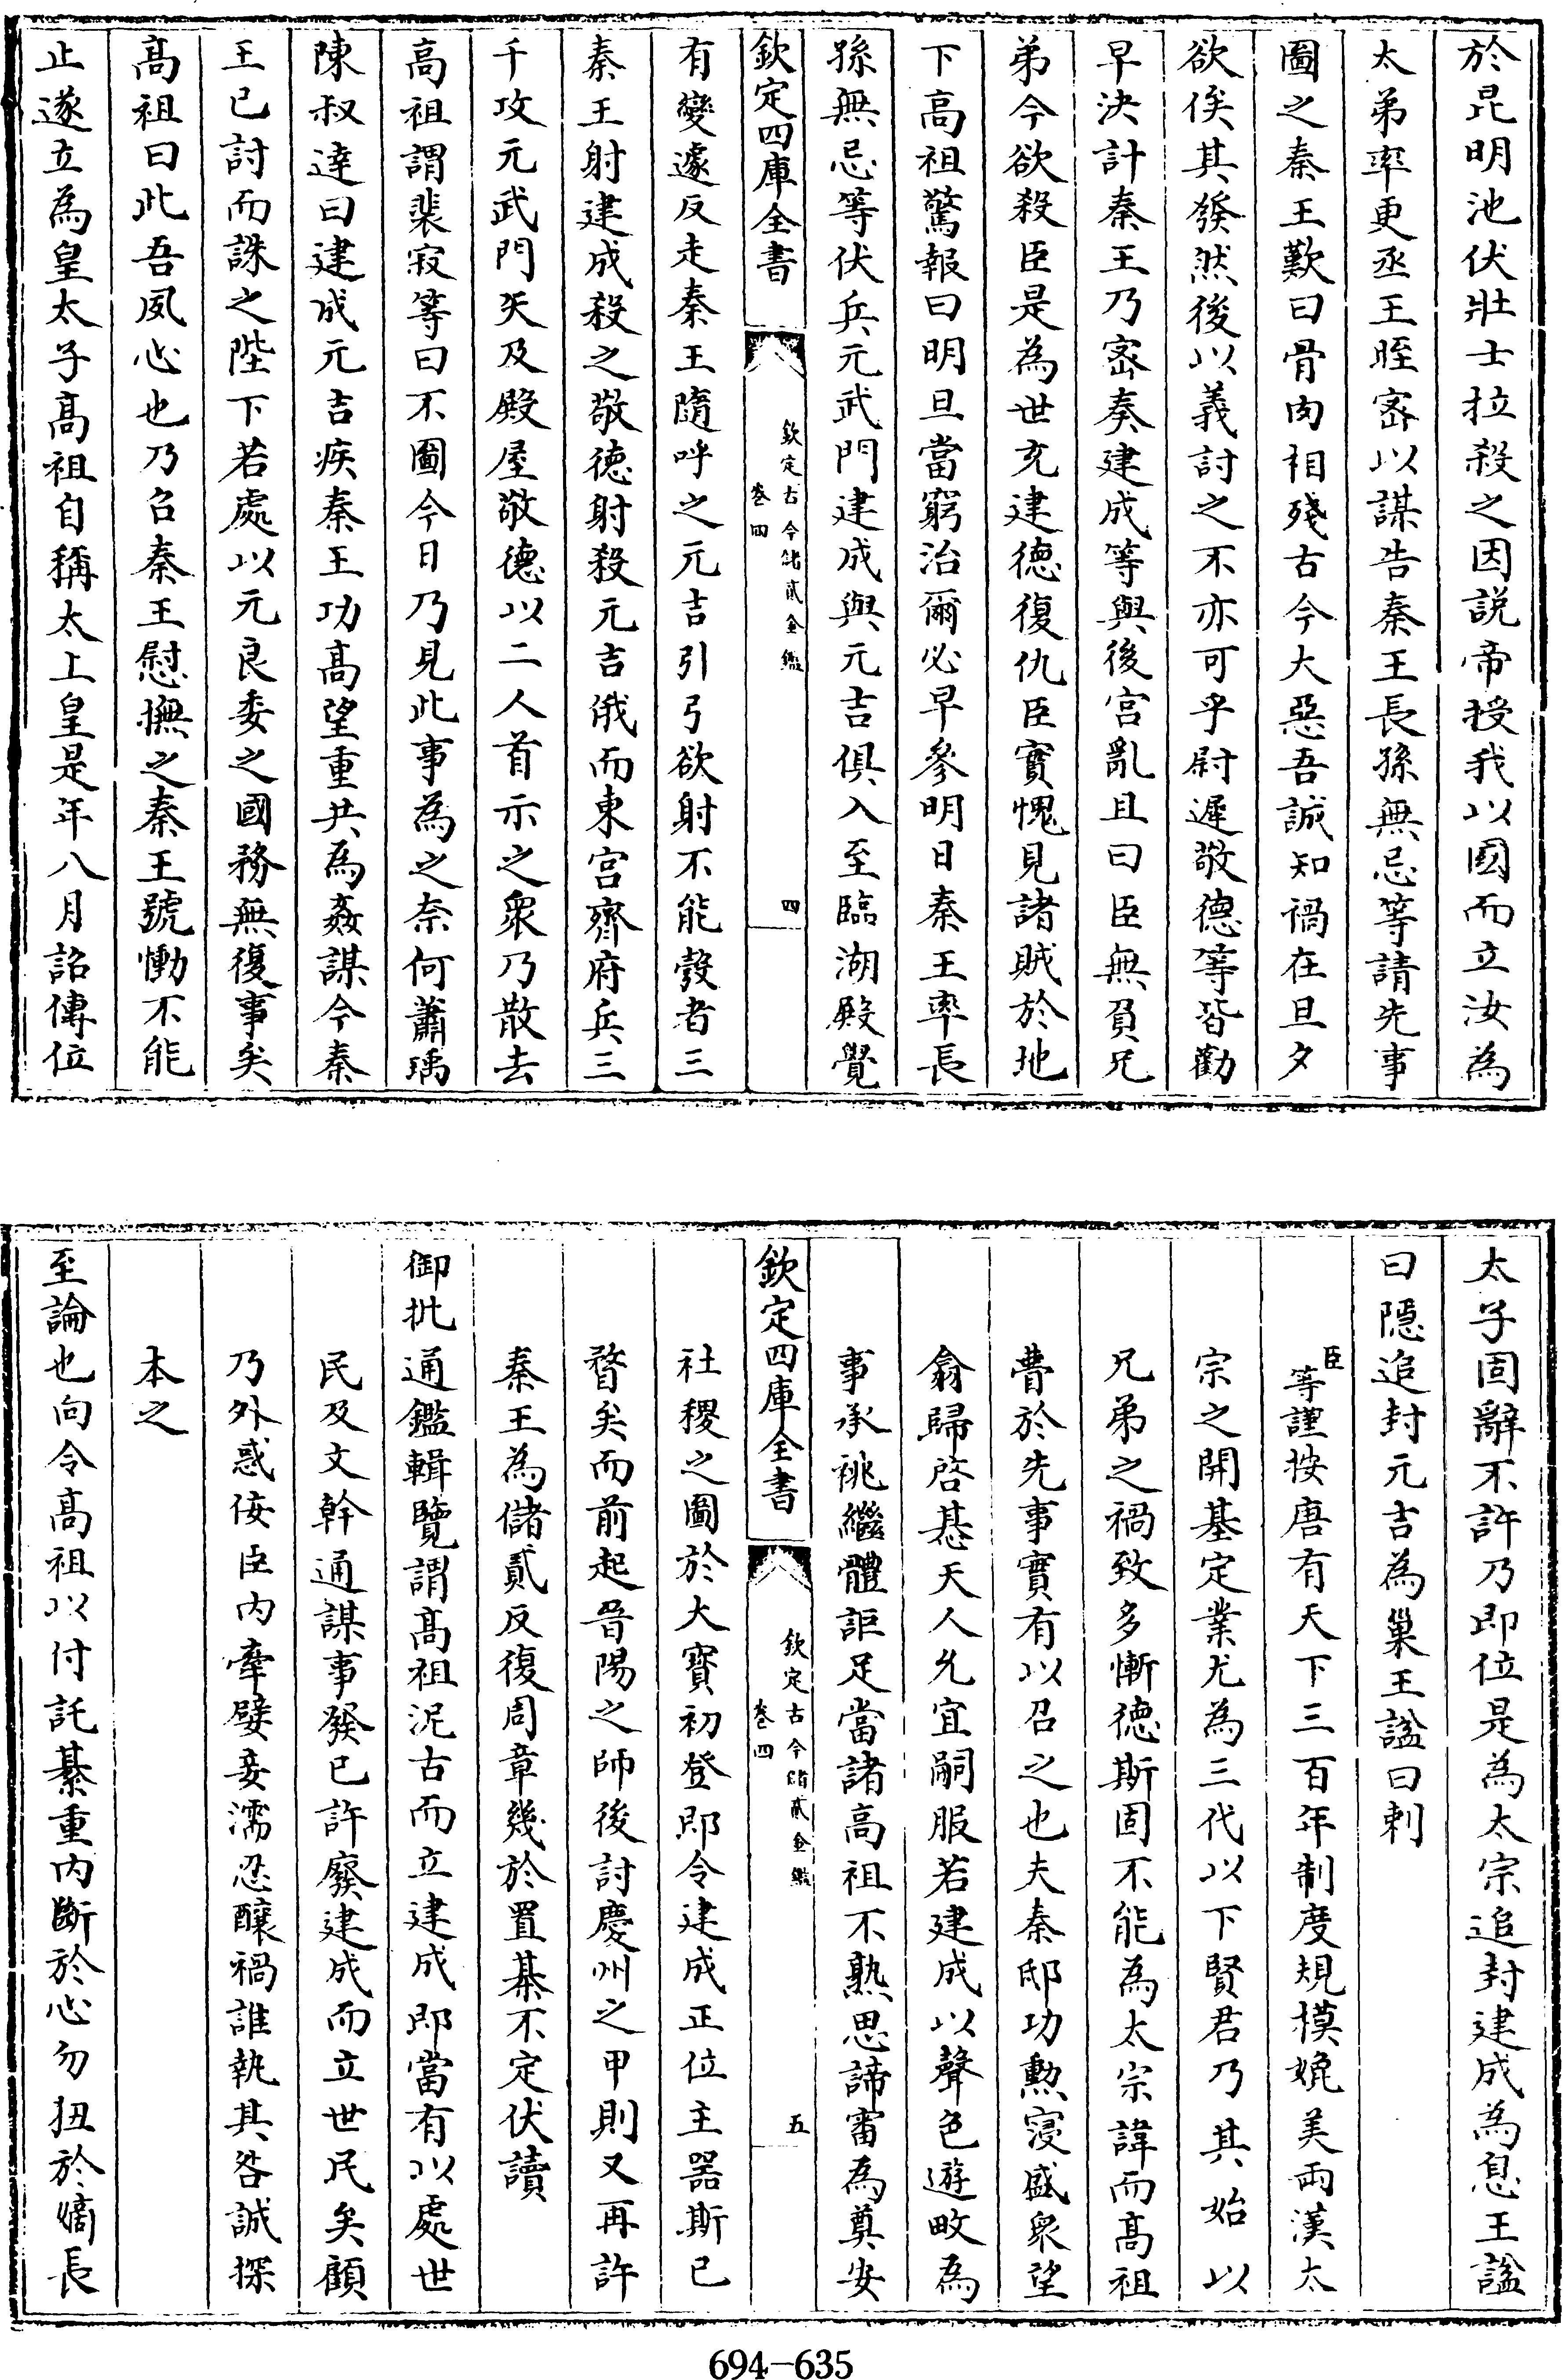 於昆明池伏壯士拉殺之因説帝授我以國而立汝為
太弟率更丞王晊宻以謀告秦王長孫無忌等請先事
圖之秦王歎曰骨肉相殘古今大惡吾誠知禍在旦夕
欲俟其發然後以義討之不亦可乎尉遲敬德等皆勸
早決計秦王乃宻奏建成等與後宫亂且曰臣無負兄
弟今欲殺臣是為世充建德復仇臣實愧見諸賊於地
下高祖驚報曰明旦當窮治爾必早參明日秦王率長
孫無忌等伏兵元武門建成與元吉俱入至臨湖殿覺
欽定四庫全書
欽定古今儲貳金鑑
卷四
四
有變遽反走秦王隨呼之元吉引弓欲射不能彀者三
秦王射建成殺之敬德射殺元吉俄而東宫齊府兵三
千攻元武門矢及殿屋敬德以二人首示之衆乃散去
高祖謂裴寂等曰不圖今日乃見此事為之奈何蕭瑀
陳叔達曰建成元吉疾秦王功髙望重共為姦謀今秦
王已討而誅之陛下若處以元良委之國務無復事矣
髙祖曰此吾夙心也乃召秦王慰撫之秦王號慟不能
止遂立為皇太子髙祖自稱太上皇是年八月詔傳位
太子固辭不許乃即位是為太宗追封建成為息王諡
曰隱追封元吉為巢王諡曰剌
臣等謹按唐有天下三百年制度規模媲美兩漢太
宗之開基定業尤為三代以下賢君乃其始以
兄弟之禍致多慚德斯固不能為太宗諱而髙祖
曹於先事實有以召之也夫秦邸功勲寖盛衆望
翕歸啓惎天人允宜嗣服若建成以聲色遊畋為
事承祧繼體詎足當諸高祖不熟思諦審為奠安
欽定四庫全書
欽定古今儲貳金鑑
卷四
五
社稷之圖於大寳初登即令建成正位主器斯已
瞀矣而前起晉陽之師後討慶州之甲則又再許
秦王為儲貳反復周章幾於置棊不定伏讀
御批通鑑輯覽謂髙祖泥古而立建成即當有以處世
民及文幹通謀事發已許廢建成而立世民矣顧
乃外惑佞臣内牽嬖妾濡忍釀禍誰執其咎誠探
本之
至論也向令髙祖以付託綦重内斷於心勿扭於嫡長
694-635